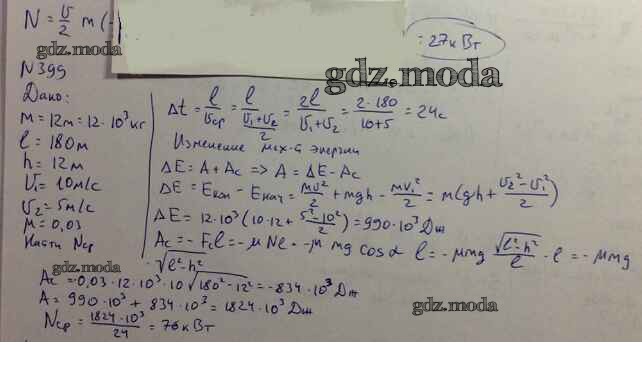 N = υ/2 m (-
= 27кВт
gdz.moda
gdz.moda
N399
Дано:
m = 12т = 12·10³кг
l = 180м
h = 12м
υ₁ = 10м/с
υ₂ = 5м/с
μ = 0,03
Найти Nср
Δt = l/υср = l/((υ₁+υ₂)/2) = 2l/(υ₁+υ₂) = 2·180/(10+5) = 24с
Изменение мех-й энергии
ΔE = A + Ac => A = ΔE - Ac
ΔE = Eкон - Eнач = mυ₂²/2 + mgh - mυ₁²/2 = m(gh + (υ₂²-υ₁²)/2)
ΔE = 12·10³(10·12 + (5²-10²)/2) = 990·10³ Дж
Ac = -Fcl = -μNl = -μ mg cosα l = -μmg √(l²-h²)/l · l = -μmg
·√(l²-h²)
gdz.moda
Ac = -0,03·12·10³·10 √(180²-12²) = -834·10³ Дж
A = 990·10³ + 834·10³ = 1824·10³ Дж
gdz.moda
Nср = 1824·10³/24 = 76кВт